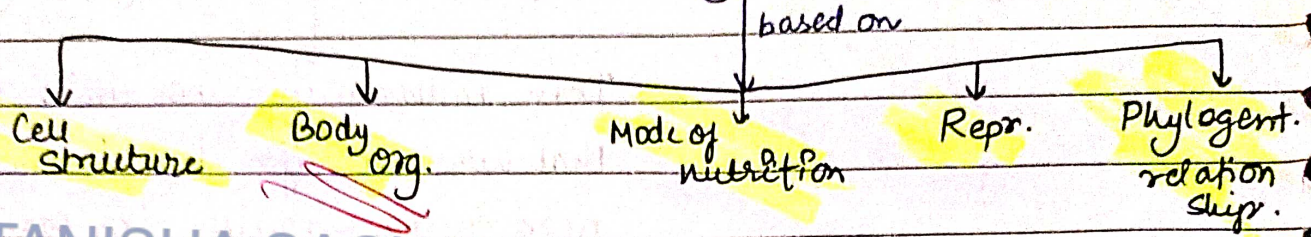 based on
Cell
structure
Body
org.
Mode of
nutrition
Repr.
Phylogent.
relation
ship.